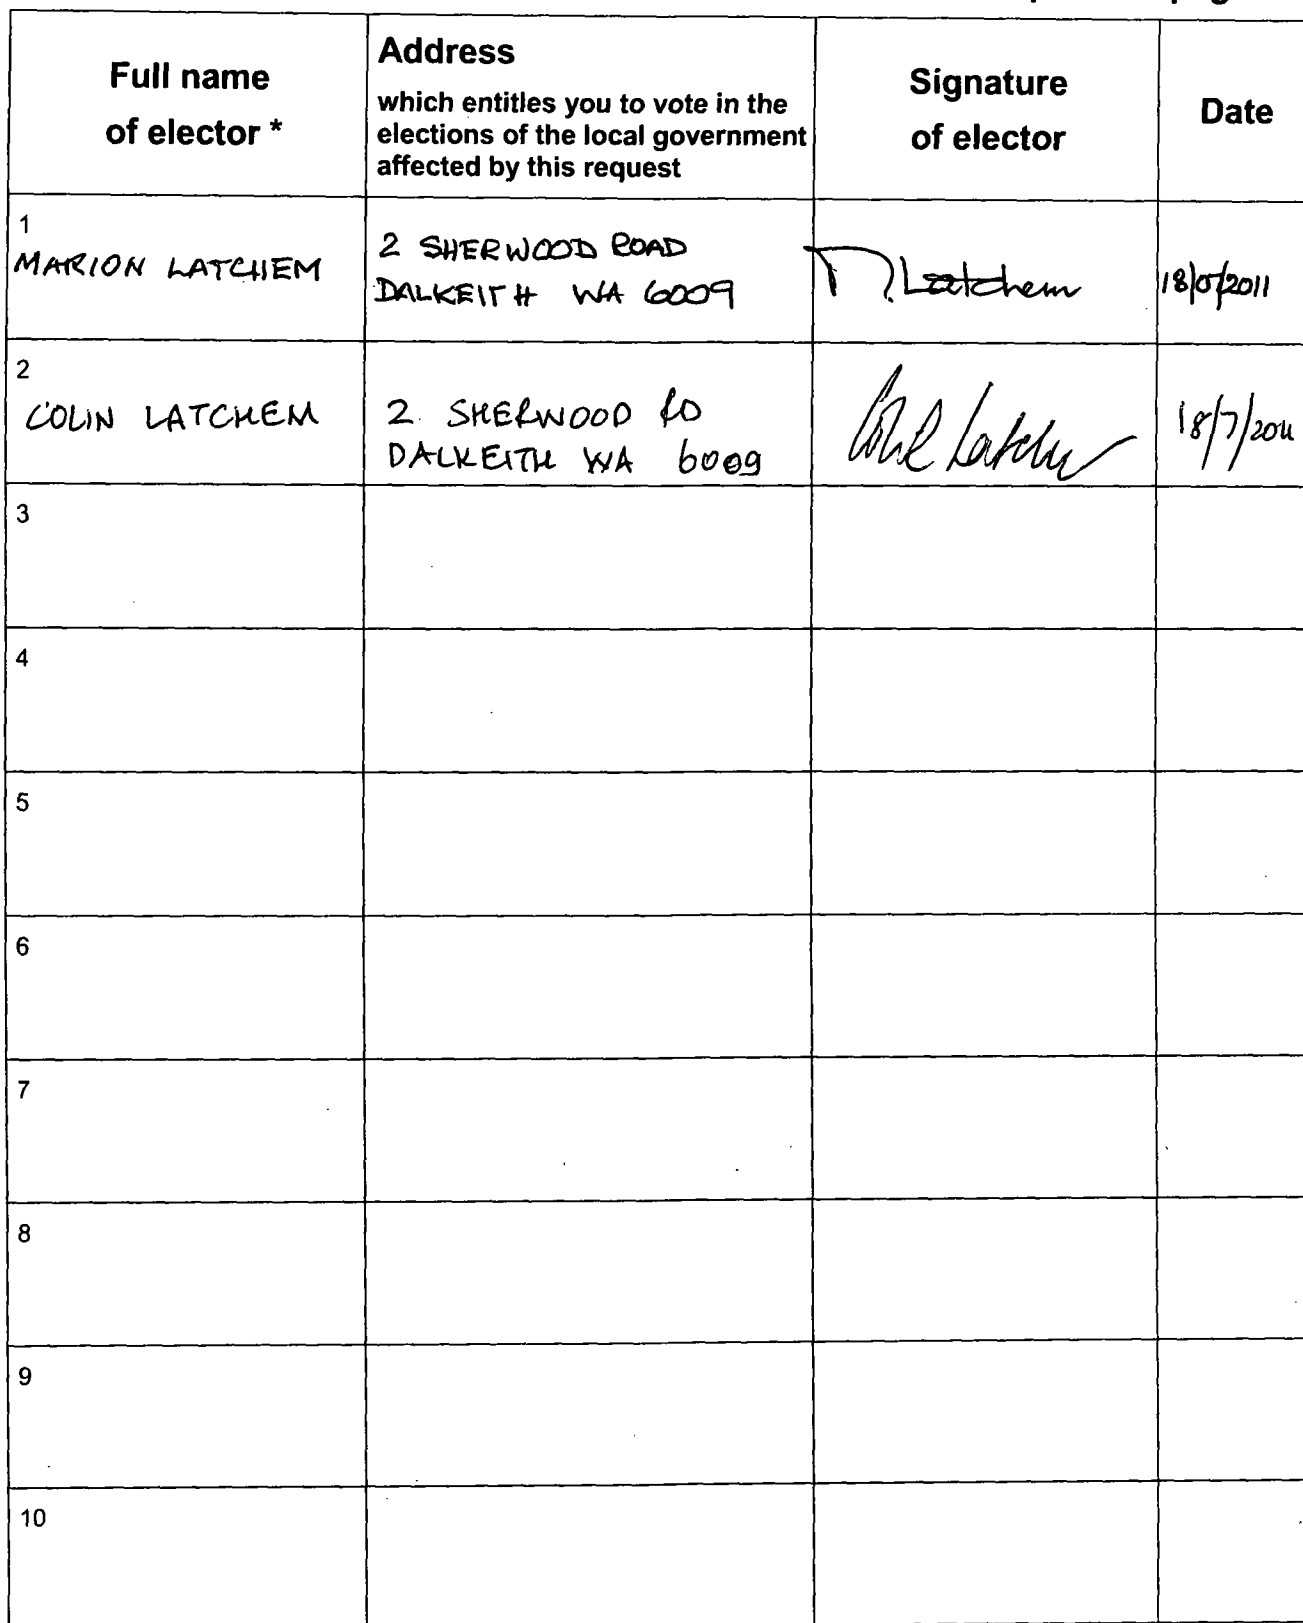 Full name
of elector *
Address
which entitles you to vote in the
elections of the local government
affected by this request
Signature
of elector
Date
1
MARION LATCHEM
2 SHERWOOD ROAD
DALKEITH WA 6009
M Latchem
2
COLIN LATCHEM
2 SHERWOOD RD
DALKEITH WA 6009
18/7/2011
3
4
5
6
7
8
9
10